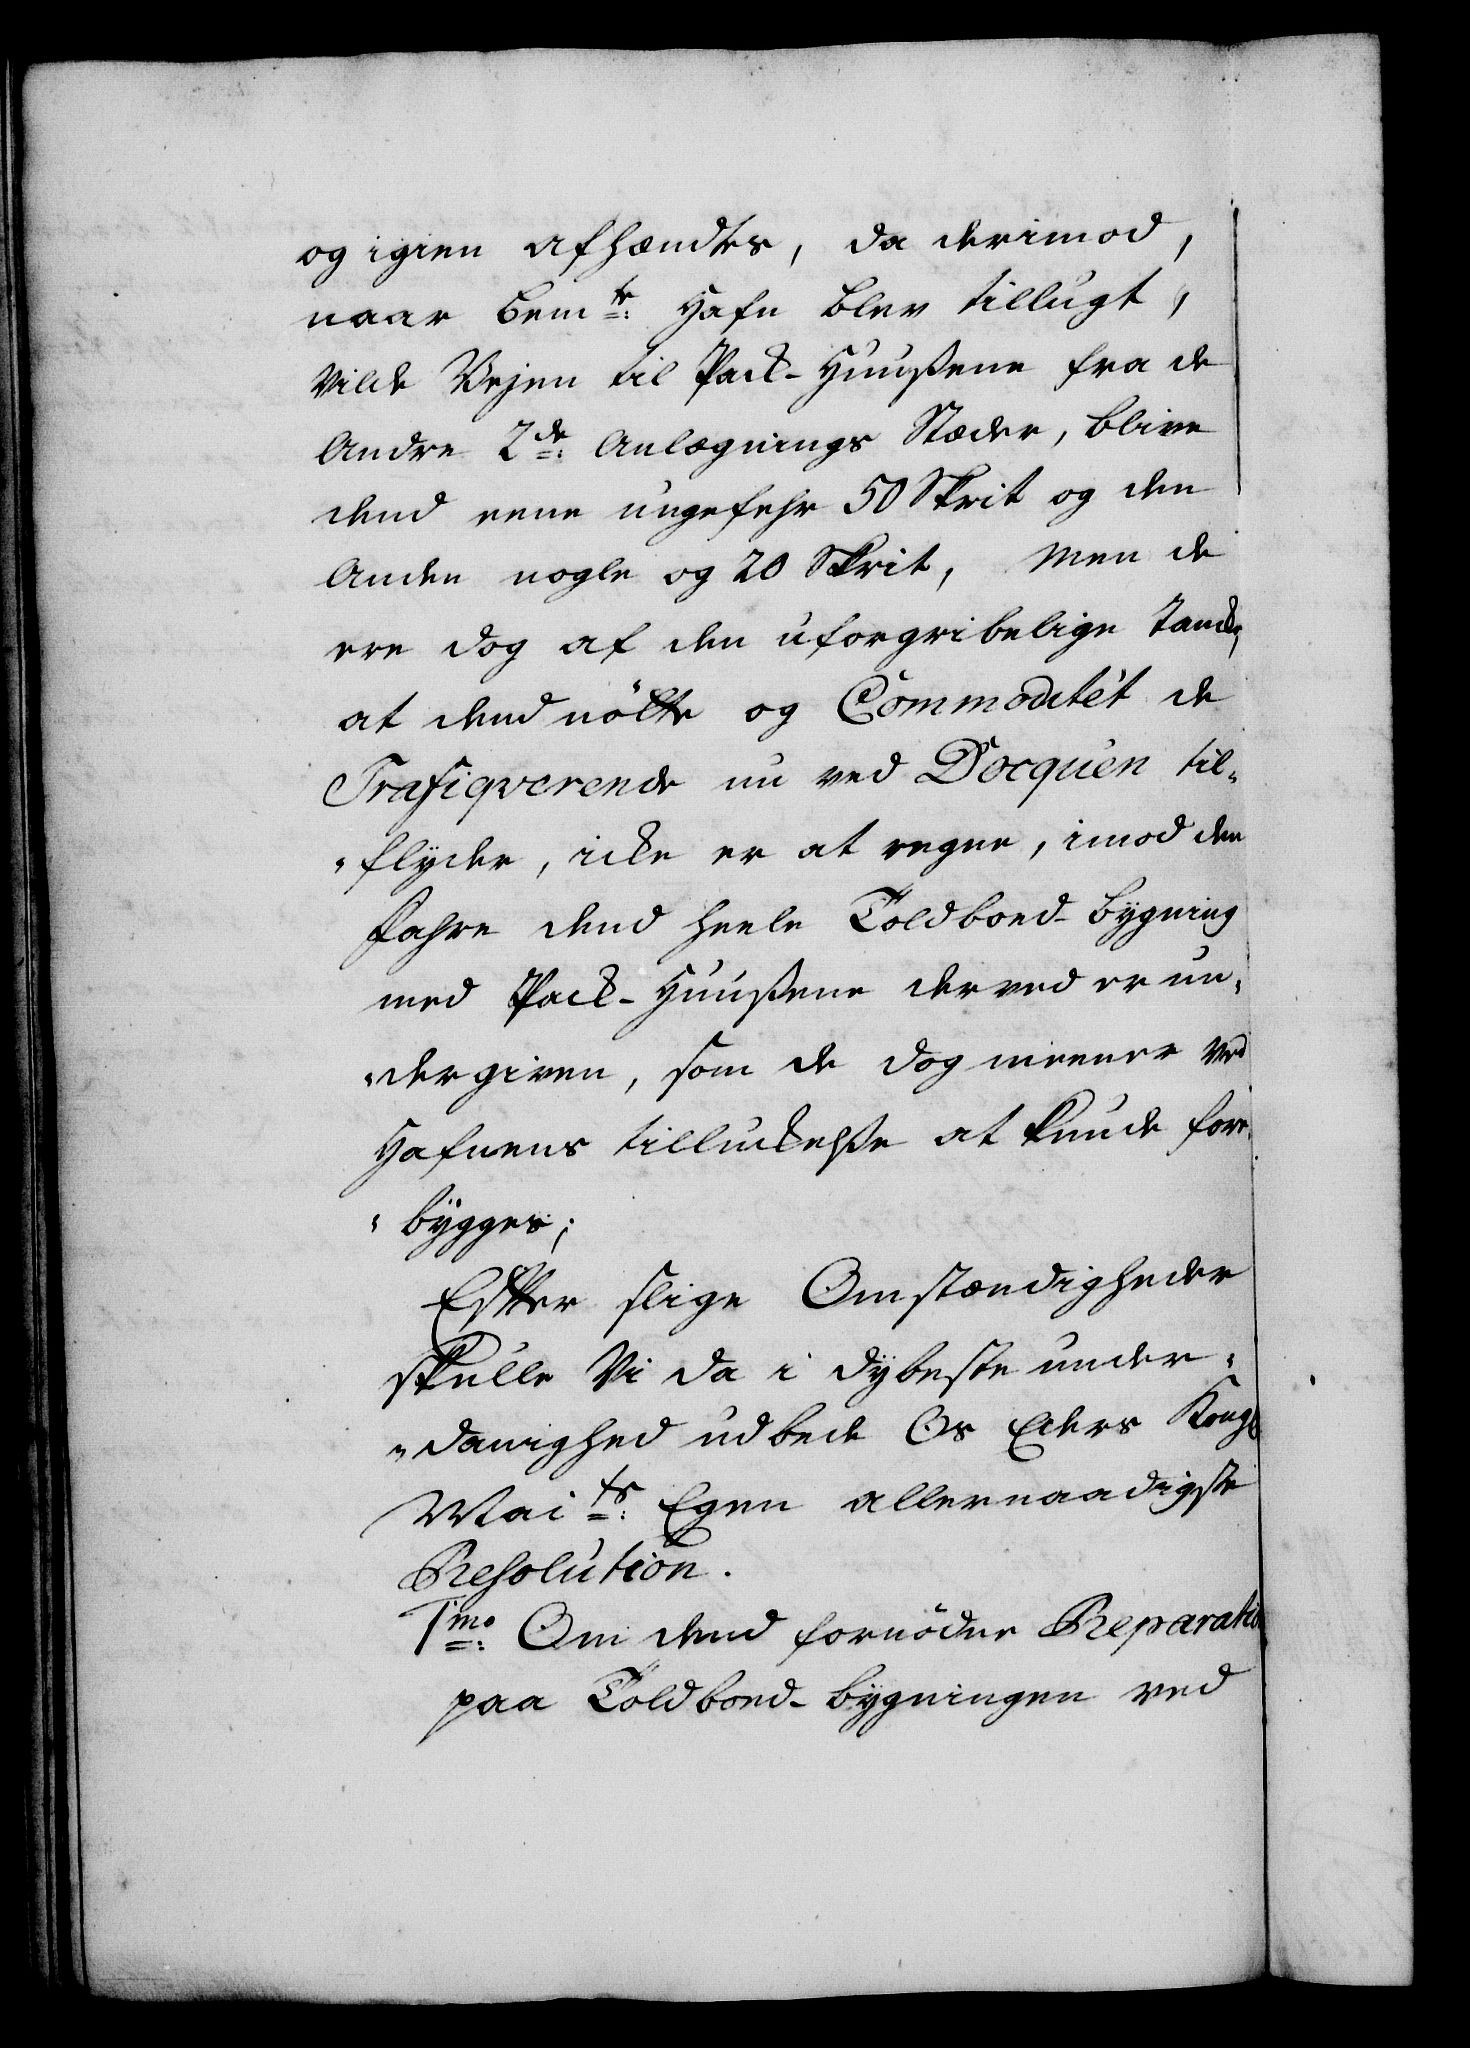 og igien afhændtes, da derimod,
naar bem<sup>te</sup>: Hafn blev tillugt,
vilde Vejen til Pack-Huußene fra de
Andre 2<sup>de</sup>: Anlægnings Stæder, blive
dend eene ungefehr 50 Skrit og den
Anden nogle og 20 Skrit, Men de
ere dog af den uforgribelige Tancke,
at dend nÿtte og Commoditét de
Trafiqverende nu ved Docquen til-
flÿder, icke er at regne, imod den
fahre dend heele Toldboed-bÿgning
med Pack-Huußene derved er un-
dergiven, som de dog meener ved
Hafnens tilluckelße at kunde fore-
bÿgges;
Efter slige Omstændigheder
skulle Vi da i dÿbeste under-
danighed udbede Os Eders Kongl
Mai<sup>ts</sup>: Egen allernaadigste
Resolution.
1<sup>mo</sup>: Om dend fornödne Reparatio
paa Toldboed-bÿgningen ved